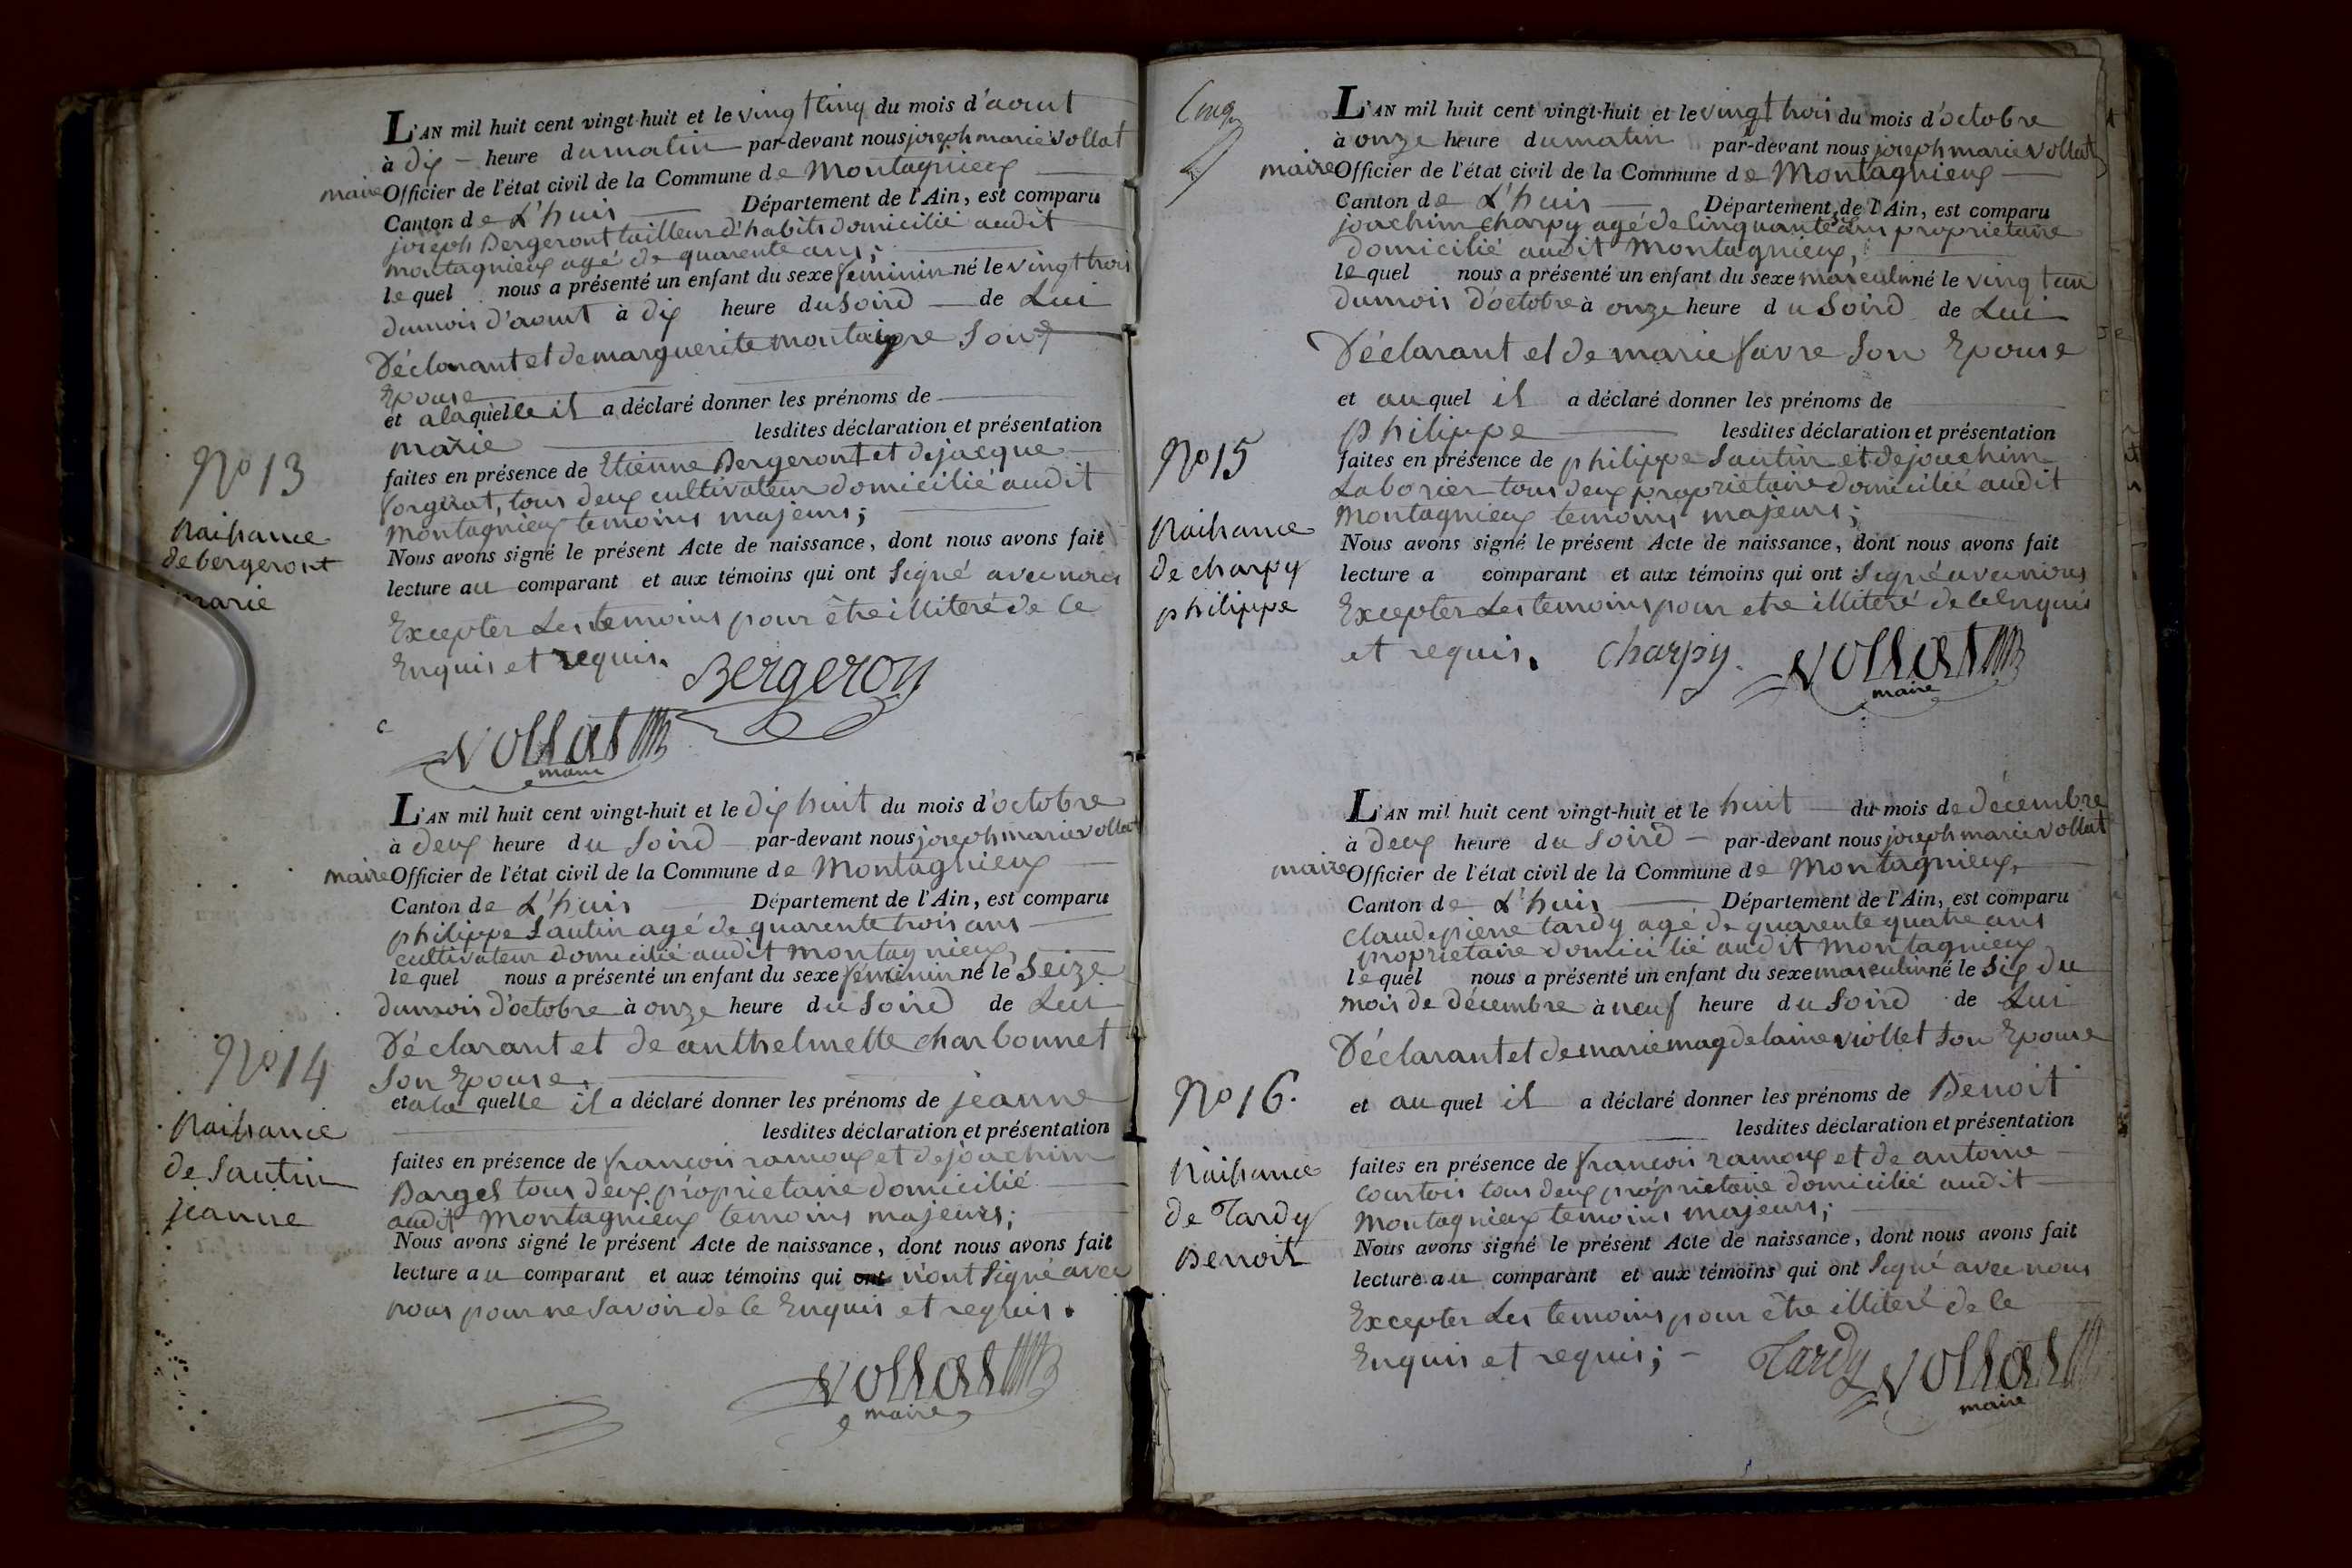 L'AN mil huit cent vingt-huit et le vingt cinq du mois d'aout
à dix heure du matin par-devant nous joseph marie Vollat
maire Officier de l'état civil de la Commune de Montagnieux
Canton de L'huis Département de l'Ain, est comparu
joseph Bergeront tailleur d'habits domicilié audit
montagnieux agé de quarente ans;
le quel nous a présenté un enfant du sexe feminin né le vingt trois
du mois d'aout à dix heure du Soird de Lui
Déclarant et de marguerite montaigre Son
Epouse
et a la quelle il a déclaré donner les prénoms de
marie lesdites déclaration et présentation
N° 13
faites en présence de Etienne Bergeront et de jacque
forgirat, tous deux cultivateur domicilié audit
Montagnieux temoins majeurs;
Naissance
de bergeront
marie
Nous avons signé le présent Acte de naissance, dont nous avons fait
lecture au comparant et aux témoins qui ont Signé avec nous
Excepter Les temoins pour être illiteré de ce
Enquis et requis.
Bergeron
Vollat
maire
L'AN mil huit cent vingt-huit et le dix huit du mois d'octobre
à deux heure du Soird par-devant nous joseph marie vollat
maire Officier de l'état civil de la Commune de Montagnieux
Canton de L'huis Département de l'Ain, est comparu
philippe Sautin agé de quarente trois ans
cultivateur domicilié audit montagnieux,
le quel nous a présenté un enfant du sexe feminin né le Seize
du mois d'octobre à onze heure du Soird de Lui
Déclarant et de anthelmette charbonnet
Son Epouse.
N° 14
et a la quelle il a déclaré donner les prénoms de jeanne
lesdites déclaration et présentation
Naissance
de Sautin
jeanne
faites en présence de francois ramoux et de joachim
Barget tous deux proprietaire domicilié
audit Montagnieux temoins majeurs;
Nous avons signé le présent Acte de naissance, dont nous avons fait
lecture au comparant et aux témoins qui ont n'ont Signé avec
nous pour ne Savoir de ce Enquis et requis.
Vollat
maire
Cinq
L'AN mil huit cent vingt-huit et le vingt trois du mois d'octobre
à onze heure du matin par-devant nous joseph marie vollat
maire Officier de l'état civil de la Commune de Montagnieux
Canton de L'huis Département de l'Ain, est comparu
joachim charpy agé de cinquante ans proprietaire
domicilié audit Montagnieux,
le quel nous a présenté un enfant du sexe masculin né le vingt un
du mois d'octobre à onze heure du Soird de Lui
Déclarant et de marie favre Son Epouse
et au quel il a déclaré donner les prénoms de
philippe lesdites déclaration et présentation
N° 15
faites en présence de philippe Sautin et de joachim
Laborier tous deux proprietaire domicilié audit
Montagnieux temoins majeurs;
Naissance
de charpy
philippe
Nous avons signé le présent Acte de naissance, dont nous avons fait
lecture a comparant et aux témoins qui ont Signé avec nous
Excepter Les temoins pour etre illiteré de ce Enquis
et requis.
charpy.
Vollat
maire
L'AN mil huit cent vingt-huit et le huit du mois de décembre
à deux heure du Soird par-devant nous joseph marie vollat
maire Officier de l'état civil de la Commune de Montagnieux,
Canton de L'huis Département de l'Ain, est comparu
Claude pierre tardy agé de quarente quatre ans
proprietaire domicilié audit Montagnieux
le quel nous a présenté un enfant du sexe masculin né le Six du
mois de décembre à neuf heure du Soird de Lui
Déclarant et de marie magdelaine viollet Son Epouse
N° 16.
et au quel il a déclaré donner les prénoms de Benoit
lesdites déclaration et présentation
Naissance
de Tardy
Benoit
faites en présence de francois ramoux et de antoine
Courtois tous deux proprietaire domicilié audit
Montagnieux temoins majeurs;
Nous avons signé le présent Acte de naissance, dont nous avons fait
lecture au comparant et aux témoins qui ont Signé avec nous
Excepter Les temoins pour être illiteré de ce
Enquis et requis;
Tardy
Vollat
maire